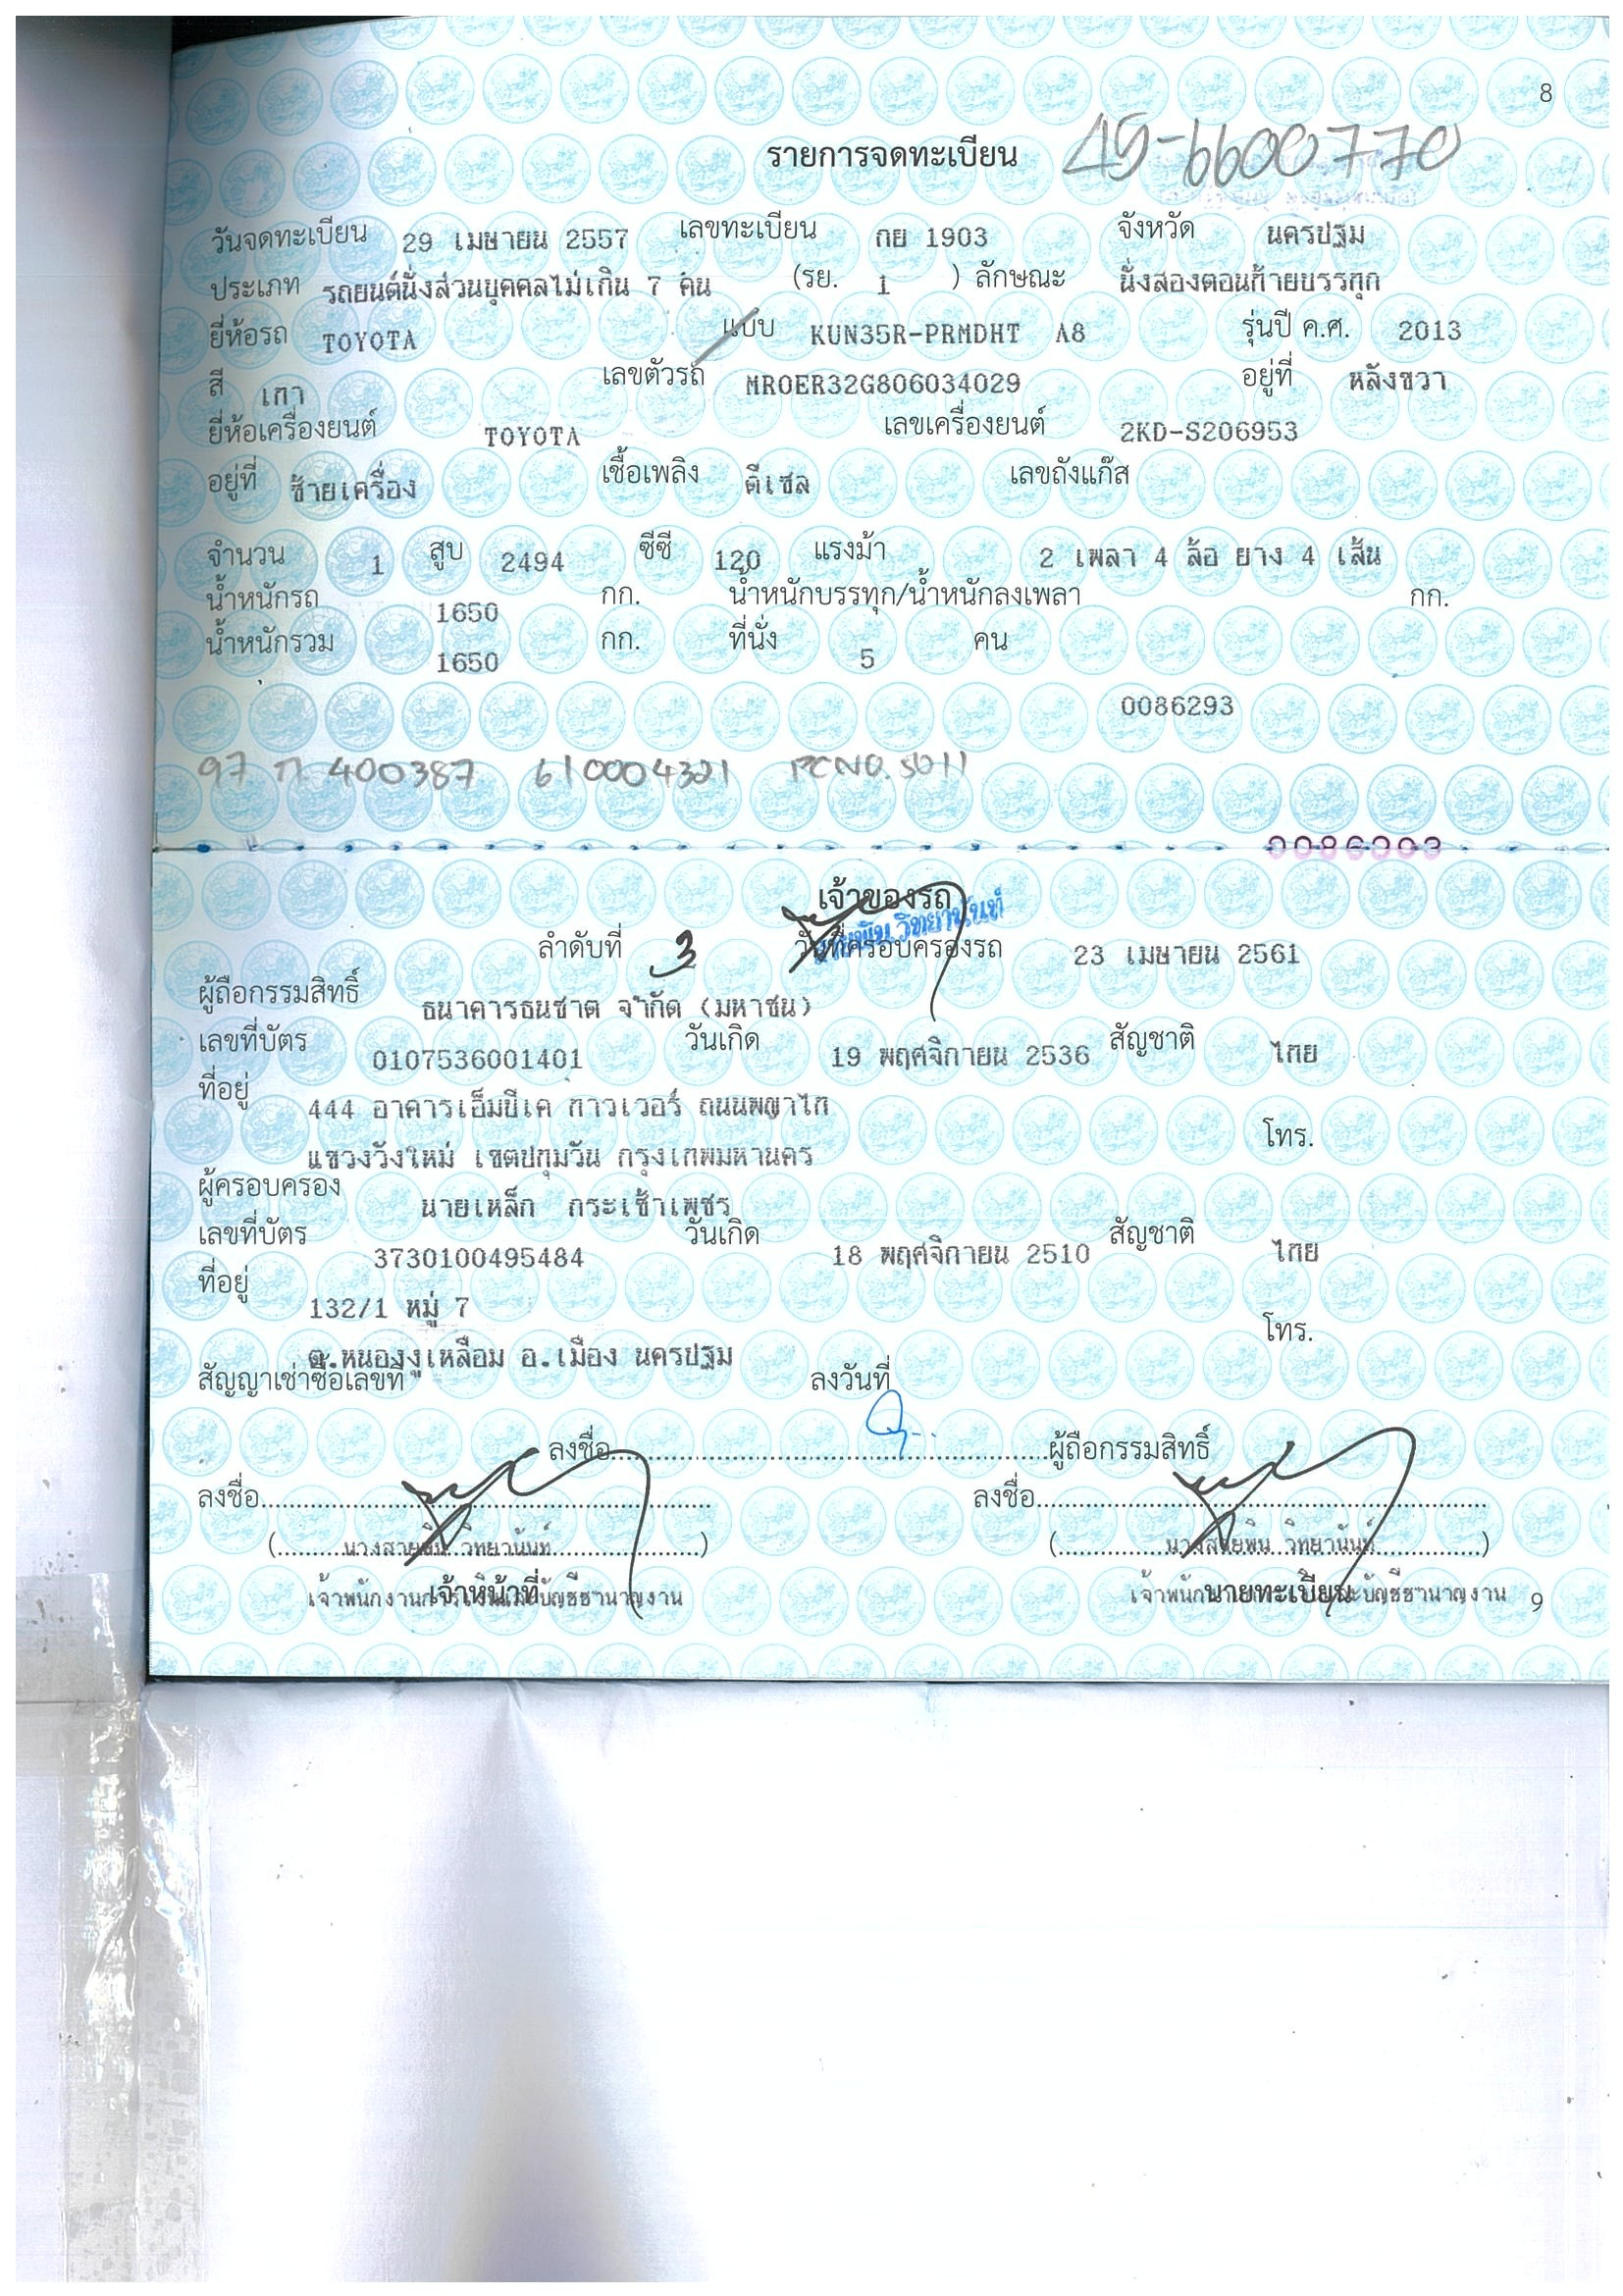 8
รายการจดทะเบียน 45-6600770
วันจดทะเบียน 29 เมษายน 2557 เลขทะเบียน กย 1903 จังหวัด นครปฐม
ประเภท รถยนต์นั่งส่วนบุคคลไม่เกิน 7 คน (รย. 1 ) ลักษณะ นั่งสองตอนท้ายบรรทุก
ยี่ห้อรถ TOYOTA แบบ KUN35R-PRMDHT A8 รุ่นปี ค.ศ. 2013
สี เทา เลขตัวรถ MROER32G806034029 อยู่ที่ หลังขวา
ยี่ห้อเครื่องยนต์ TOYOTA เลขเครื่องยนต์ 2KD-S206953
อยู่ที่ ซ้ายเครื่อง เชื้อเพลิง ดีเซล เลขถังแก๊ส
จำนวน 1 สูบ 2494 ซีซี 120 แรงม้า 2 เพลา 4 ล้อ ยาง 4 เส้น
น้ำหนักรถ 1650 กก. น้ำหนักบรรทุก/น้ำหนักลงเพลา กก.
น้ำหนักรวม 1650 กก. ที่นั่ง 5 คน
0086293
97 ก 400387 610004321 PCNO. 5011
0086293
เจ้าของรถ
ลำดับที่ 3 วันที่ครอบครองรถ 23 เมษายน 2561
ผู้ถือกรรมสิทธิ์ ธนาคารธนชาต จำกัด (มหาชน)
เลขที่บัตร 0107536001401 วันเกิด 19 พฤศจิกายน 2536 สัญชาติ ไทย
ที่อยู่ 444 อาคารเอ็มบีเค ทาวเวอร์ ถนนพญาไท
แขวงวังใหม่ เขตปทุมวัน กรุงเทพมหานคร โทร.
ผู้ครอบครอง นายเหล็ก กระเช้าเพชร
เลขที่บัตร 3730100495484 วันเกิด 18 พฤศจิกายน 2510 สัญชาติ ไทย
ที่อยู่ 132/1 หมู่ 7
ต.หนองงูเหลือม อ.เมือง นครปฐม โทร.
สัญญาเช่าซื้อเลขที่ ลงวันที่
ลงชื่อ ผู้ถือกรรมสิทธิ์
ลงชื่อ ลงชื่อ
(นางสายพิน วิทยานันท์) (นางสายพิน วิทยานันท์)
เจ้าพนักงานการเงินและบัญชีชำนาญงาน เจ้าหน้าที่ เจ้าพนักงานการเงินและบัญชีชำนาญงาน นายทะเบียน 9